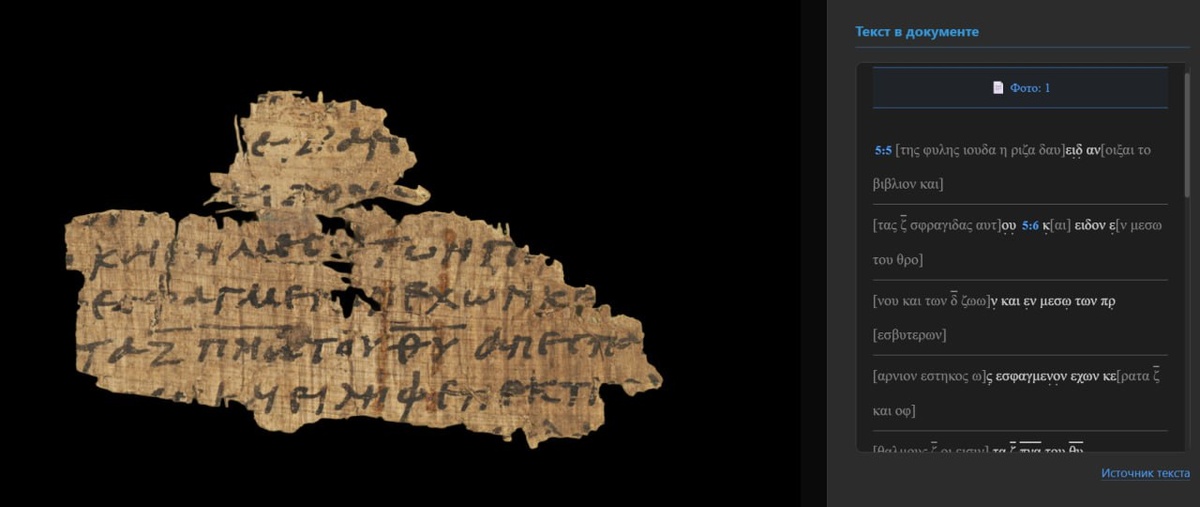 ΕΧΩΝ
ΤΑ Ζ̅ Π̅Ν̅Α̅ ΤΟΥ Θ̅Υ̅
Текст в документе
Фото: 1
5:5 [της φυλης ιουδα η ριζα δαυ]ειδ̣ αν̣[οιξαι το
βιβλιον και]
[τας ζ̅ σφραγιδας αυτ]ο̣υ̣ 5:6 κ̣[αι] ειδον ε̣[ν μεσω
του θρο]
[νου και των δ̅ ζωω]ν̣ και εν μεσω̣ των πρ̣
[εσβυτερων]
[αρνιον εστηκος ω]ς̣ εσφαγμεν̣ο̣ν εχων κε̣[ρατα ζ̅
και οφ]
[θαλμους ζ̅ οι εισιν] τα ζ̅ π̅ν̅α̅ του θ̅υ̅
Источник текста